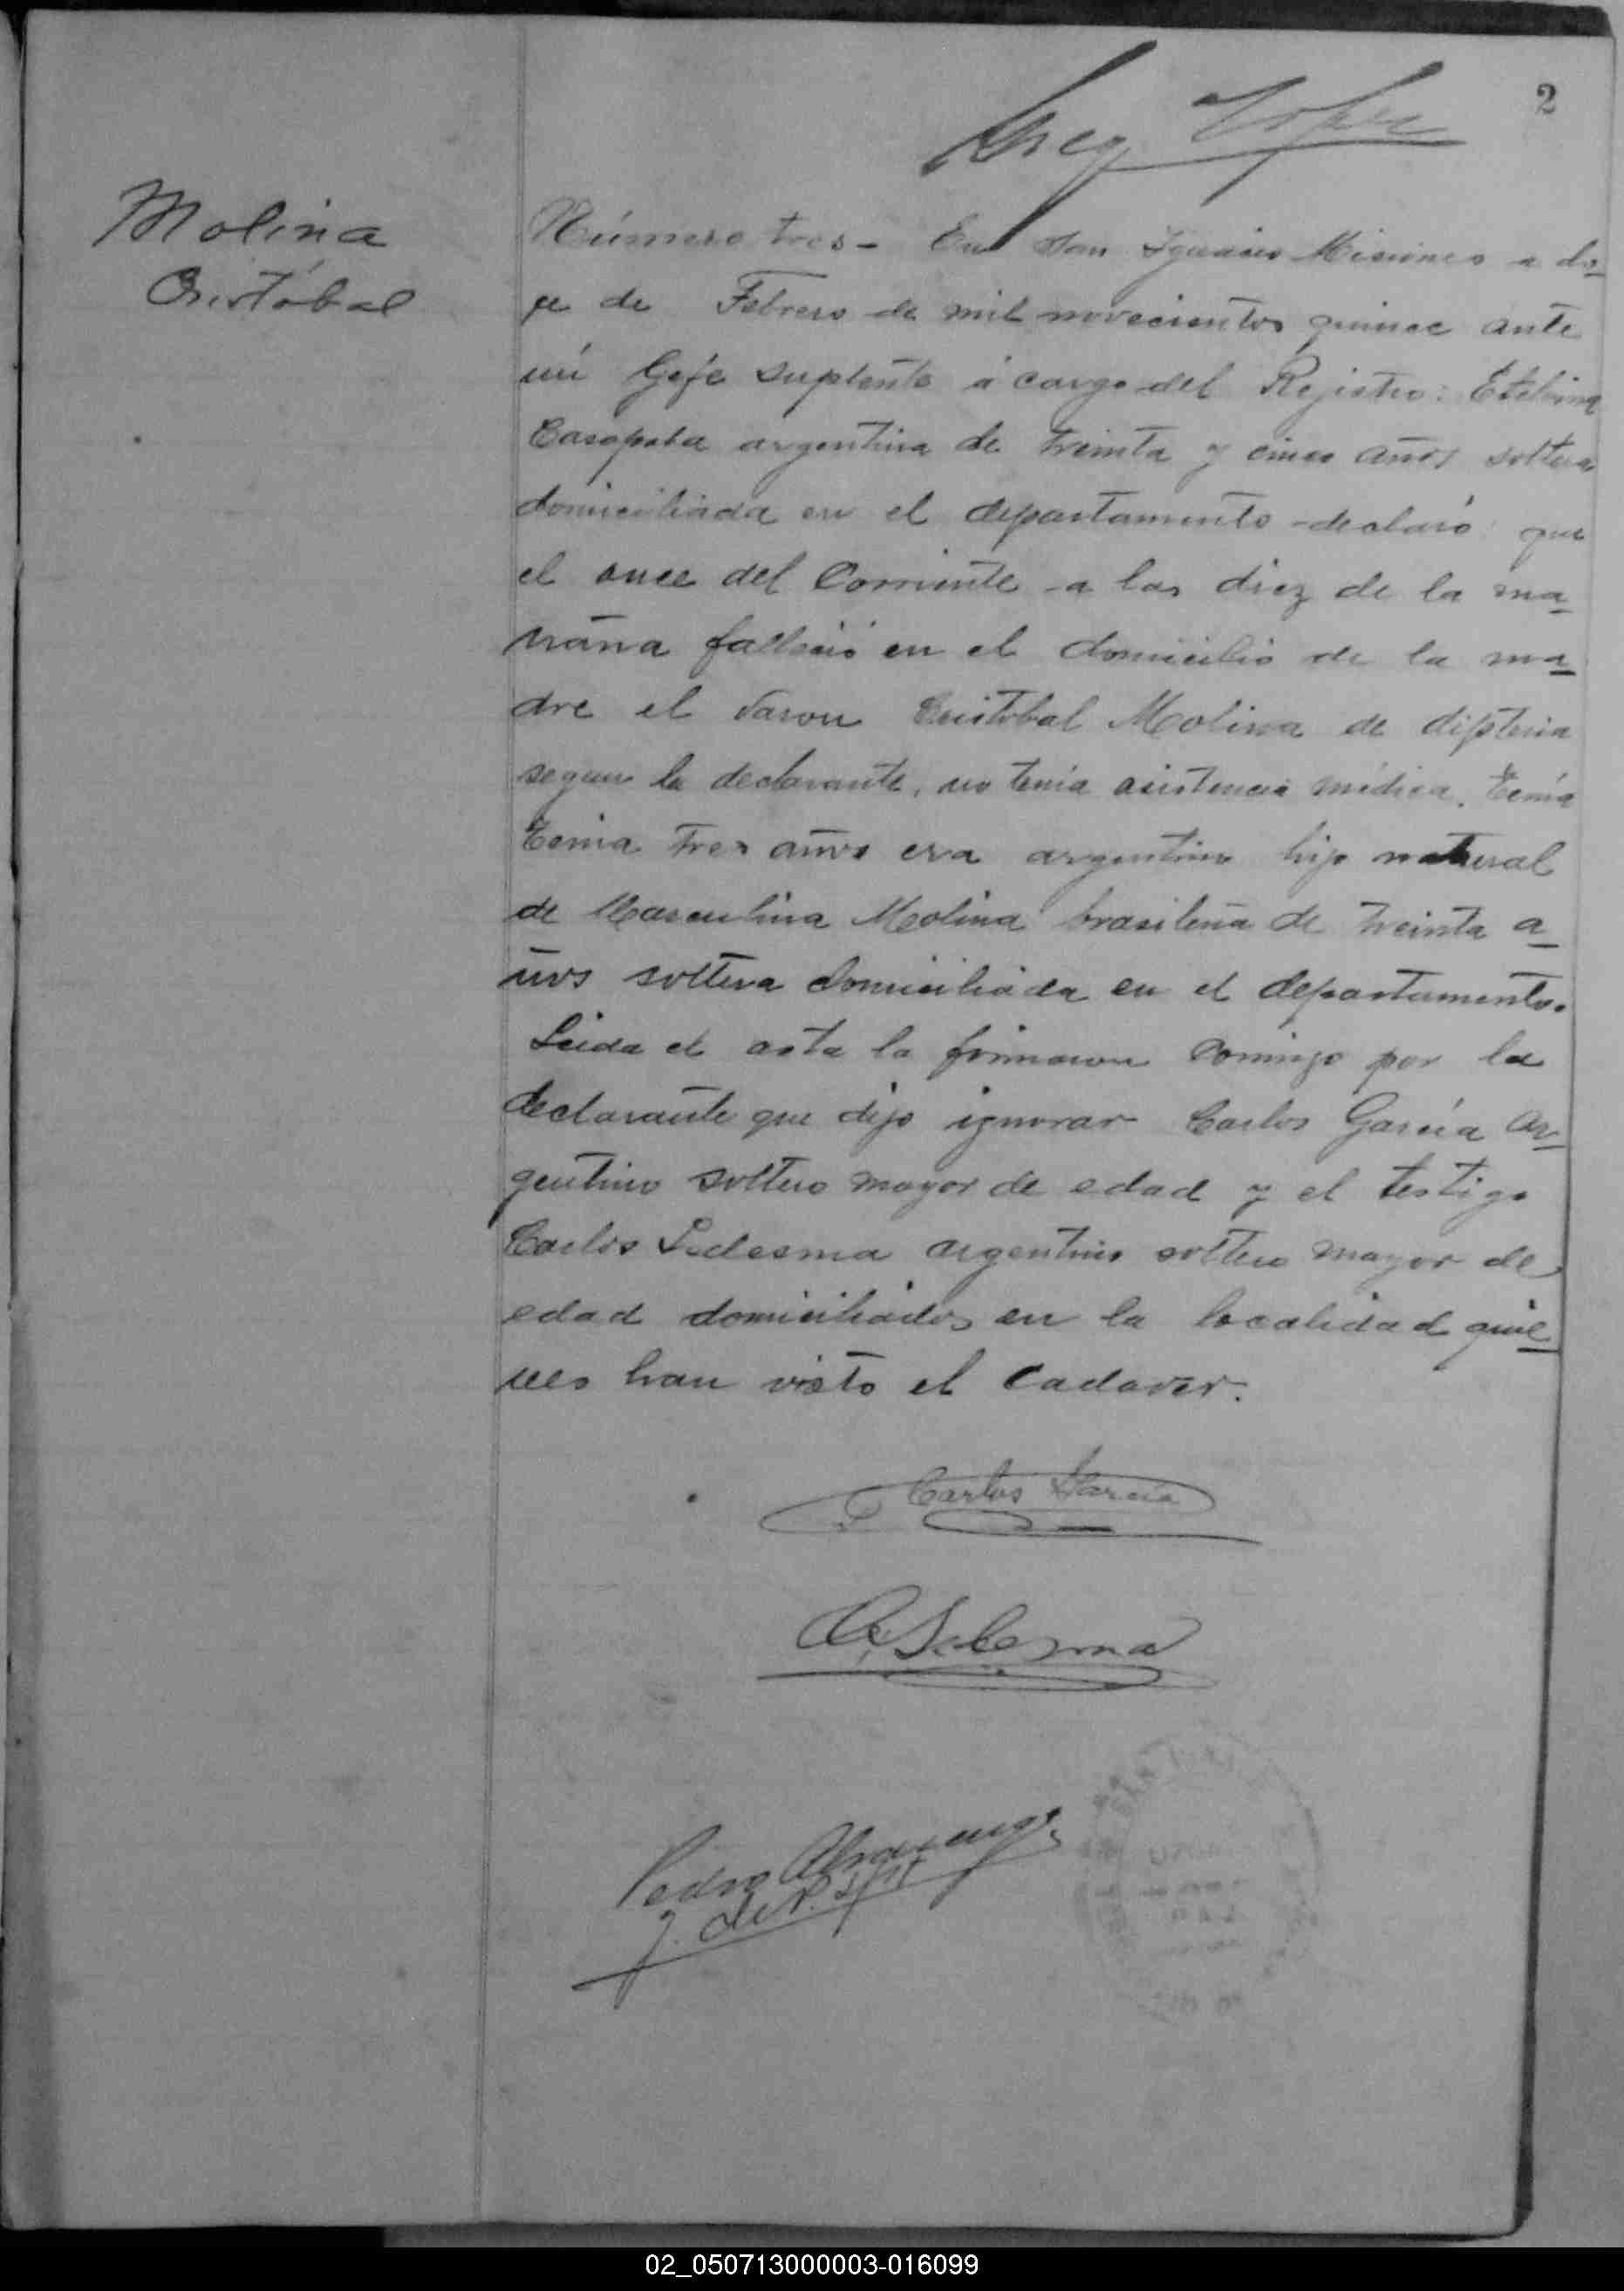 2
Molina
Cristóbal
Número tres - En San Ignacio Misiones a do
ce de Febrero de mil novecientos quince ante
mi Gefe suplente á cargo del Rejistro: Etelvina
argentina de treinta y cinco años soltera
domiciliada en el departamento declaró: que
el once del Corriente a las diez de la ma
ñana falleció en el domicilio de la ma
dre el varon Cristobal Molina de difteria
segun la declarante, no tenia asistencia médica. Tenía
tenia tres años era argentino hijo natural
de Marculina Molina brasileña de treinta a
ños soltera domiciliada en el departamento.
Leida el acta la firmaron conmigo por la
declarante que dijo ignorar Carlos García ar
gentino soltero mayor de edad y el testigo
Carlos Ledesma argentino soltero mayor de
edad domiciliados en la localidad quie
nes han visto el cadaver.
Carlos García
C. Ledesma
Pedro
J. de P.
02_050713000003-016099